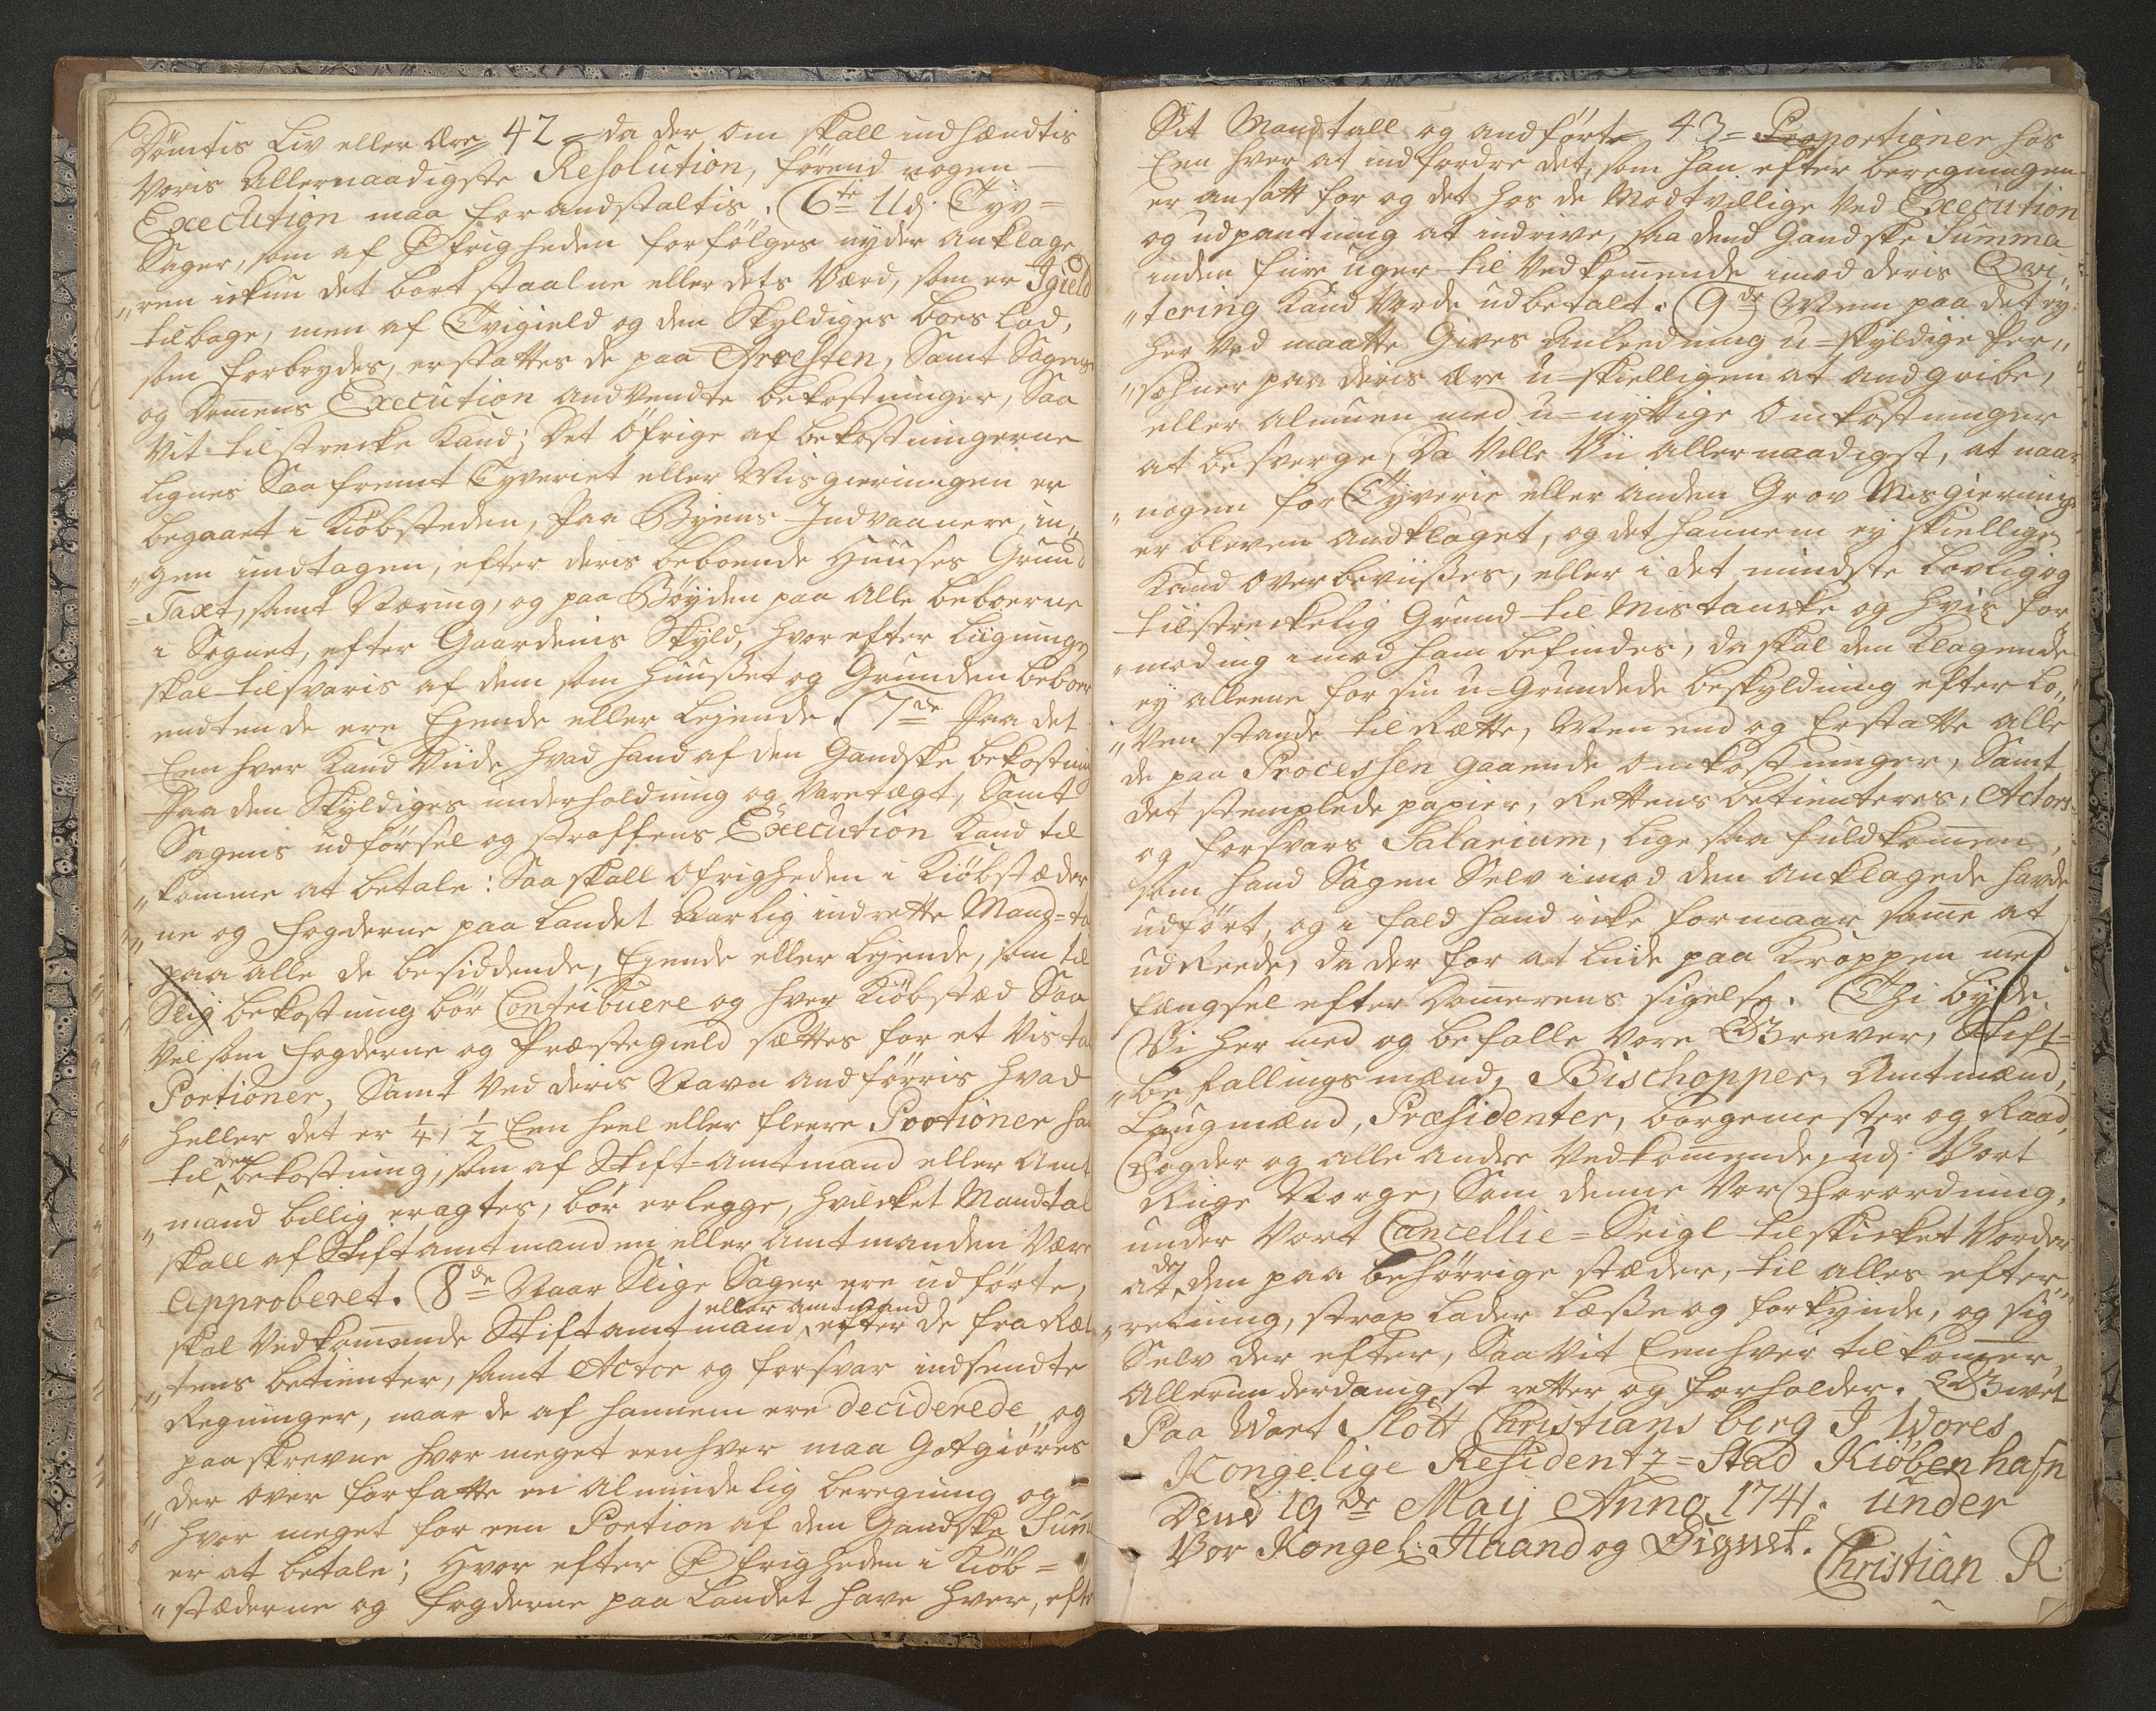 Dömtis Liv eller Ære, 42 = da der om skall indhændtis
Voris Allernaadigste Resolution, förend nogen
Execution maa forandstaltis. 6te Udj Tyv=
Sager, som af Øfrigheden forfölges nyder Anklage„
„ren ickun det bortstaalne eller dets Værd, som er Igield
tilbage, men af Tvigield og den Skyldiges boeslod,
som forbrydes, erstattes de paa Arresten, Samt Sagens
og Dommens Execution andvendte bekostninger, Saa
Vit tilstrecke Kand; Det Öfrige af bekostningerne
lignes Saafremt Tyveriet eller Misgierningen er
begaaet i Kiöbsteden, paa Byens Indvaanere, in„
„gen undtagen, efter deris beboende Huuses Grund
=Taxt, samt Næring, og paa Bøyden paa Alle beboerne
i Sognet, efter Gaardenis Skyld, hvorefter Ligningen
skal tilsvaris af dem som Huuset og Grunden beboer
endten de ere Eyende eller Leyende. 7de Paa det
Een hver Kand Viide hvad hand af den Gandske bekostning
Paa den Skyldiges underholdning og Varetægt, Samt
Sagens udförsel og straffens Execution Kand til
„komme at betale: Saa skall Øfrigheden i Kiöbstæder
„ne og fogderne paa Landet Aarlig indrette Mand=ta
paa alle de besiddende, Eyende eller Leyende, som til
Slig bekostning bör Contribuere og hver Kiöbstæd Saa
Vel som fogderne og Præstegield sættes for et Vis ta
Portioner, Samt Ved deris Navn andförris hvad
heller det er 1/4, 1/2 Een heel eller fleere Portioner ha
til den bekostning, som af Stift=Amtmand eller Amt
„mand billig eragtes, bör erlegge, hvilcket Mandtal
skall af Stiftamtmanden eller Amtmanden Være
Approberet. 8de Naar Slige Sager ere udförte,
skal Vedkommende Stiftamtmand eller Amtmand efter de fra Ræt
„tens betienter, samt Actor og forsvar indsendte
Regninger, naar de af hannem ere deciderede og
paaskrevne hvor meget eenhver maa Gotgiöres
„der over forfatte en Almindelig beregning og
hvor meget for een Portion af den Gandske Sum
er at betale; Hvor efter Øfrigheden i Kiöb=
„stæderne og fogderne paa Landet have hver, efter
Sit Mandtall og andförte 43= Proportioner hos
Een hver at indfordre det, som han efter beregningen
er ansatt for og det hos de Modtvillige Ved Execution
og udpantning at indrive, saa dend Gandske Summa
inden fiire uger til Vedkommende imod deris Qvi„
„tering Kand Vorde udbetalt. 9de Men paa det ey
her Ved maatte Gives Anleedning u=skyldige Per„
„sohner paa deris Ære u=skielligen at andgribe,
eller Almuen med u=nyttige Omkostninger
at besverge, Da Ville Vii Allernaadigst, at naar
„nogen for Tyverie eller anden Grov Misgierning
er bleven Andklaget, og det hannem ey skiellige
Kand overbeviises, eller i det mindste Lovlig og
tilstreckelig Grund til Mistancke og hvis for„
„moding imod ham befindes, da skal den klagende
ey alleene for sin u=Grundede beskyldning efter Lo„
„ven stande til Rætte, Men end og Erstatte Alle
de paa Processen gaaende Omkostninger, Samt
det stemplede papier, Rettens betienteres, Actors
og forsvars Salarium, lige saa fuldkommen,
som hand Sagen Selv imod den Anklagede havde
udført, og i fald hand icke formaar samme at
udReede, da der for at Liide paa Kroppen med
fængsel efter Dommerens sigelse. Thi byde
Vi her med og befalle Vore Grever, Stift=
„befallingsmænd, Bischopper, Amtmænd,
Laugmænd, Præsidenter, borgemester og Raad,
Fogder og Alle Andre Vedkommende, udj Vort
Riige Norge, Som denne Vor Forordning,
under Vort Cancellie=Seigl tilskicket Vorder
at de den paa behörrige stæder, til alles efter„
„retning, strax Lader Læse og forkynde, og sig
Selv der efter, Saa Vit Eenhver tilkommer,
Allerunderdanigst retter og forholder. Givet
Paa Wort Slott Christians borg I Wores
Kongelige Residentz=Stad Kiöbenhafn
Dend 19de Maij Anno 1741. under
Vor Kongel: Haand og Signet.
Christian R.